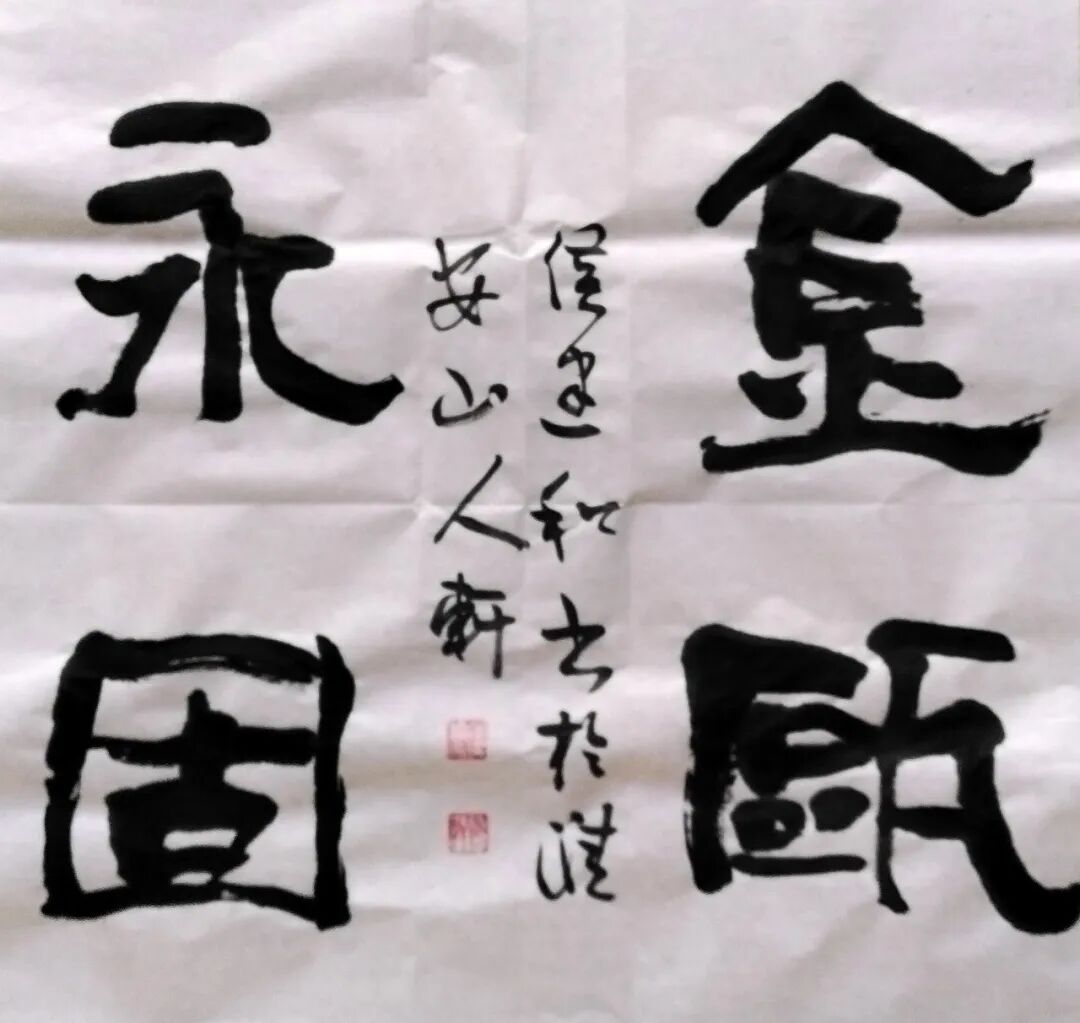 金甌
永固
侯建和書於淮
安山人軒